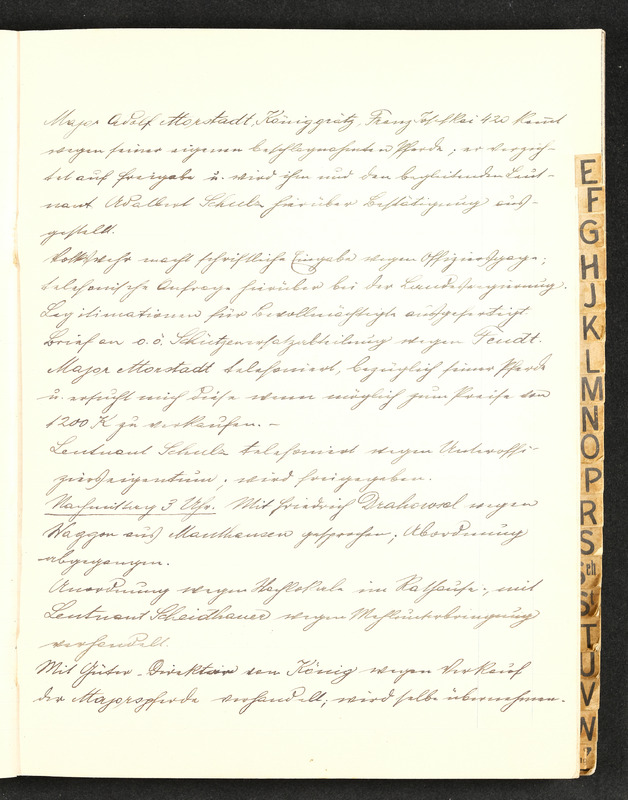 Major Adolf Morstadt, Königgrätz, Franz Josefkai 420 kommt
wegen seiner eigenen beschlagnahmten Pferde; er verzich-
tet auf Freigabe u. wird ihm und den begleitenden Leut-
nant Adalbert Schulz hierüber Bestätigung aus-
gestellt.
Volkswehr macht schriftliche Eingabe wegen Offiziersgage;
telefonische Anfrage hierüber bei der Landesregierung.
Legitimationen für Bevollmächtigte ausgefertigt.
Brief an o.ö. Schützenersatzabteilung wegen Feudt.
Major Morstadt telefoniert, bezüglich seiner Pferde
u. ersucht mich diese wenn möglich zum Preise von
1200 K zu verkaufen. –
Leutnant Schulz telefoniert wegen Unteroffi-
zierseigentum, wird freigegeben.
Nachmittag 3 Uhr. Mit Friedrich wegen
Waggon aus Mauthausen gesprochen; Abordnung
abgegangen.
Anordnung wegen im Rathause; mit
Leutnant Scheidhauer wegen Mehlunterbringung
verhandelt.
Mit Güter-Direktor von König wegen Verkauf
der Majorspferde verhandelt; wird selbe übernehmen.
E
F
G
H
J
K
L
M
N
O
P
R
S
Sch
St
T
U
V
W